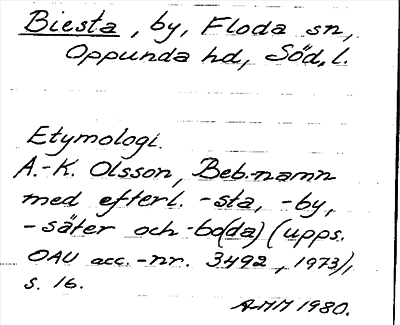 Biesta, by, Floda sn,
Oppunda hd, Söd. l.
Etymologi.
A.-K. Olsson, Beb.-namn
med efterl. -sta, -by,
-säter och -bo(da) (upps.
OAU acc.-nr. 3492, 1973),
s. 16.
AMM 1980.